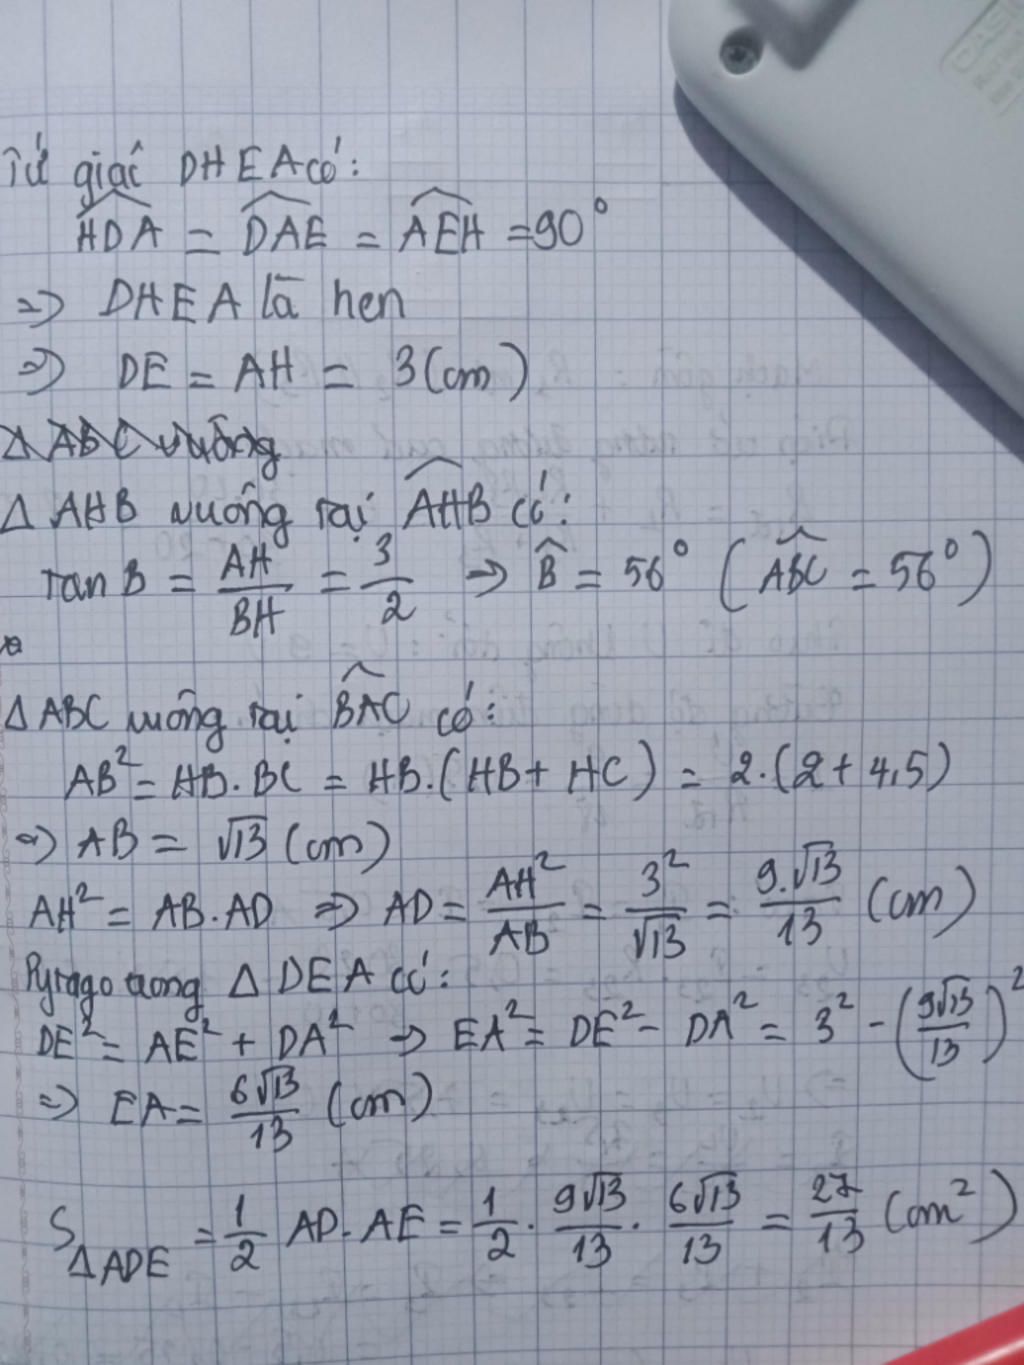 Tứ giác DHEA có:
HDA = DAE = AEH = 90°
=> DHEA là hcn
=> DE = AH = 3(cm)
Δ ABC vuông
Δ AHB vuông tại AHB có:
tan B = AH/BH = 3/2 => B = 56° (ABC = 56°)
Δ ABC vuông tại BAC có:
AB² = HB.BC = HB.(HB + HC) = 2.(2 + 4,5)
=> AB = √13 (cm)
AH² = AB.AD => AD = AH²/AB = 3²/√13 = 9.√13/13 (cm)
Pytago trong Δ DEA có:
DE² = AE² + DA² => EA² = DE² - DA² = 3² - (9√13/13)²
=> EA = 6√13/13 (cm)
S ΔADE = 1/2 AD.AE = 1/2 . 9√13/13 . 6√13/13 = 27/13 (cm²)